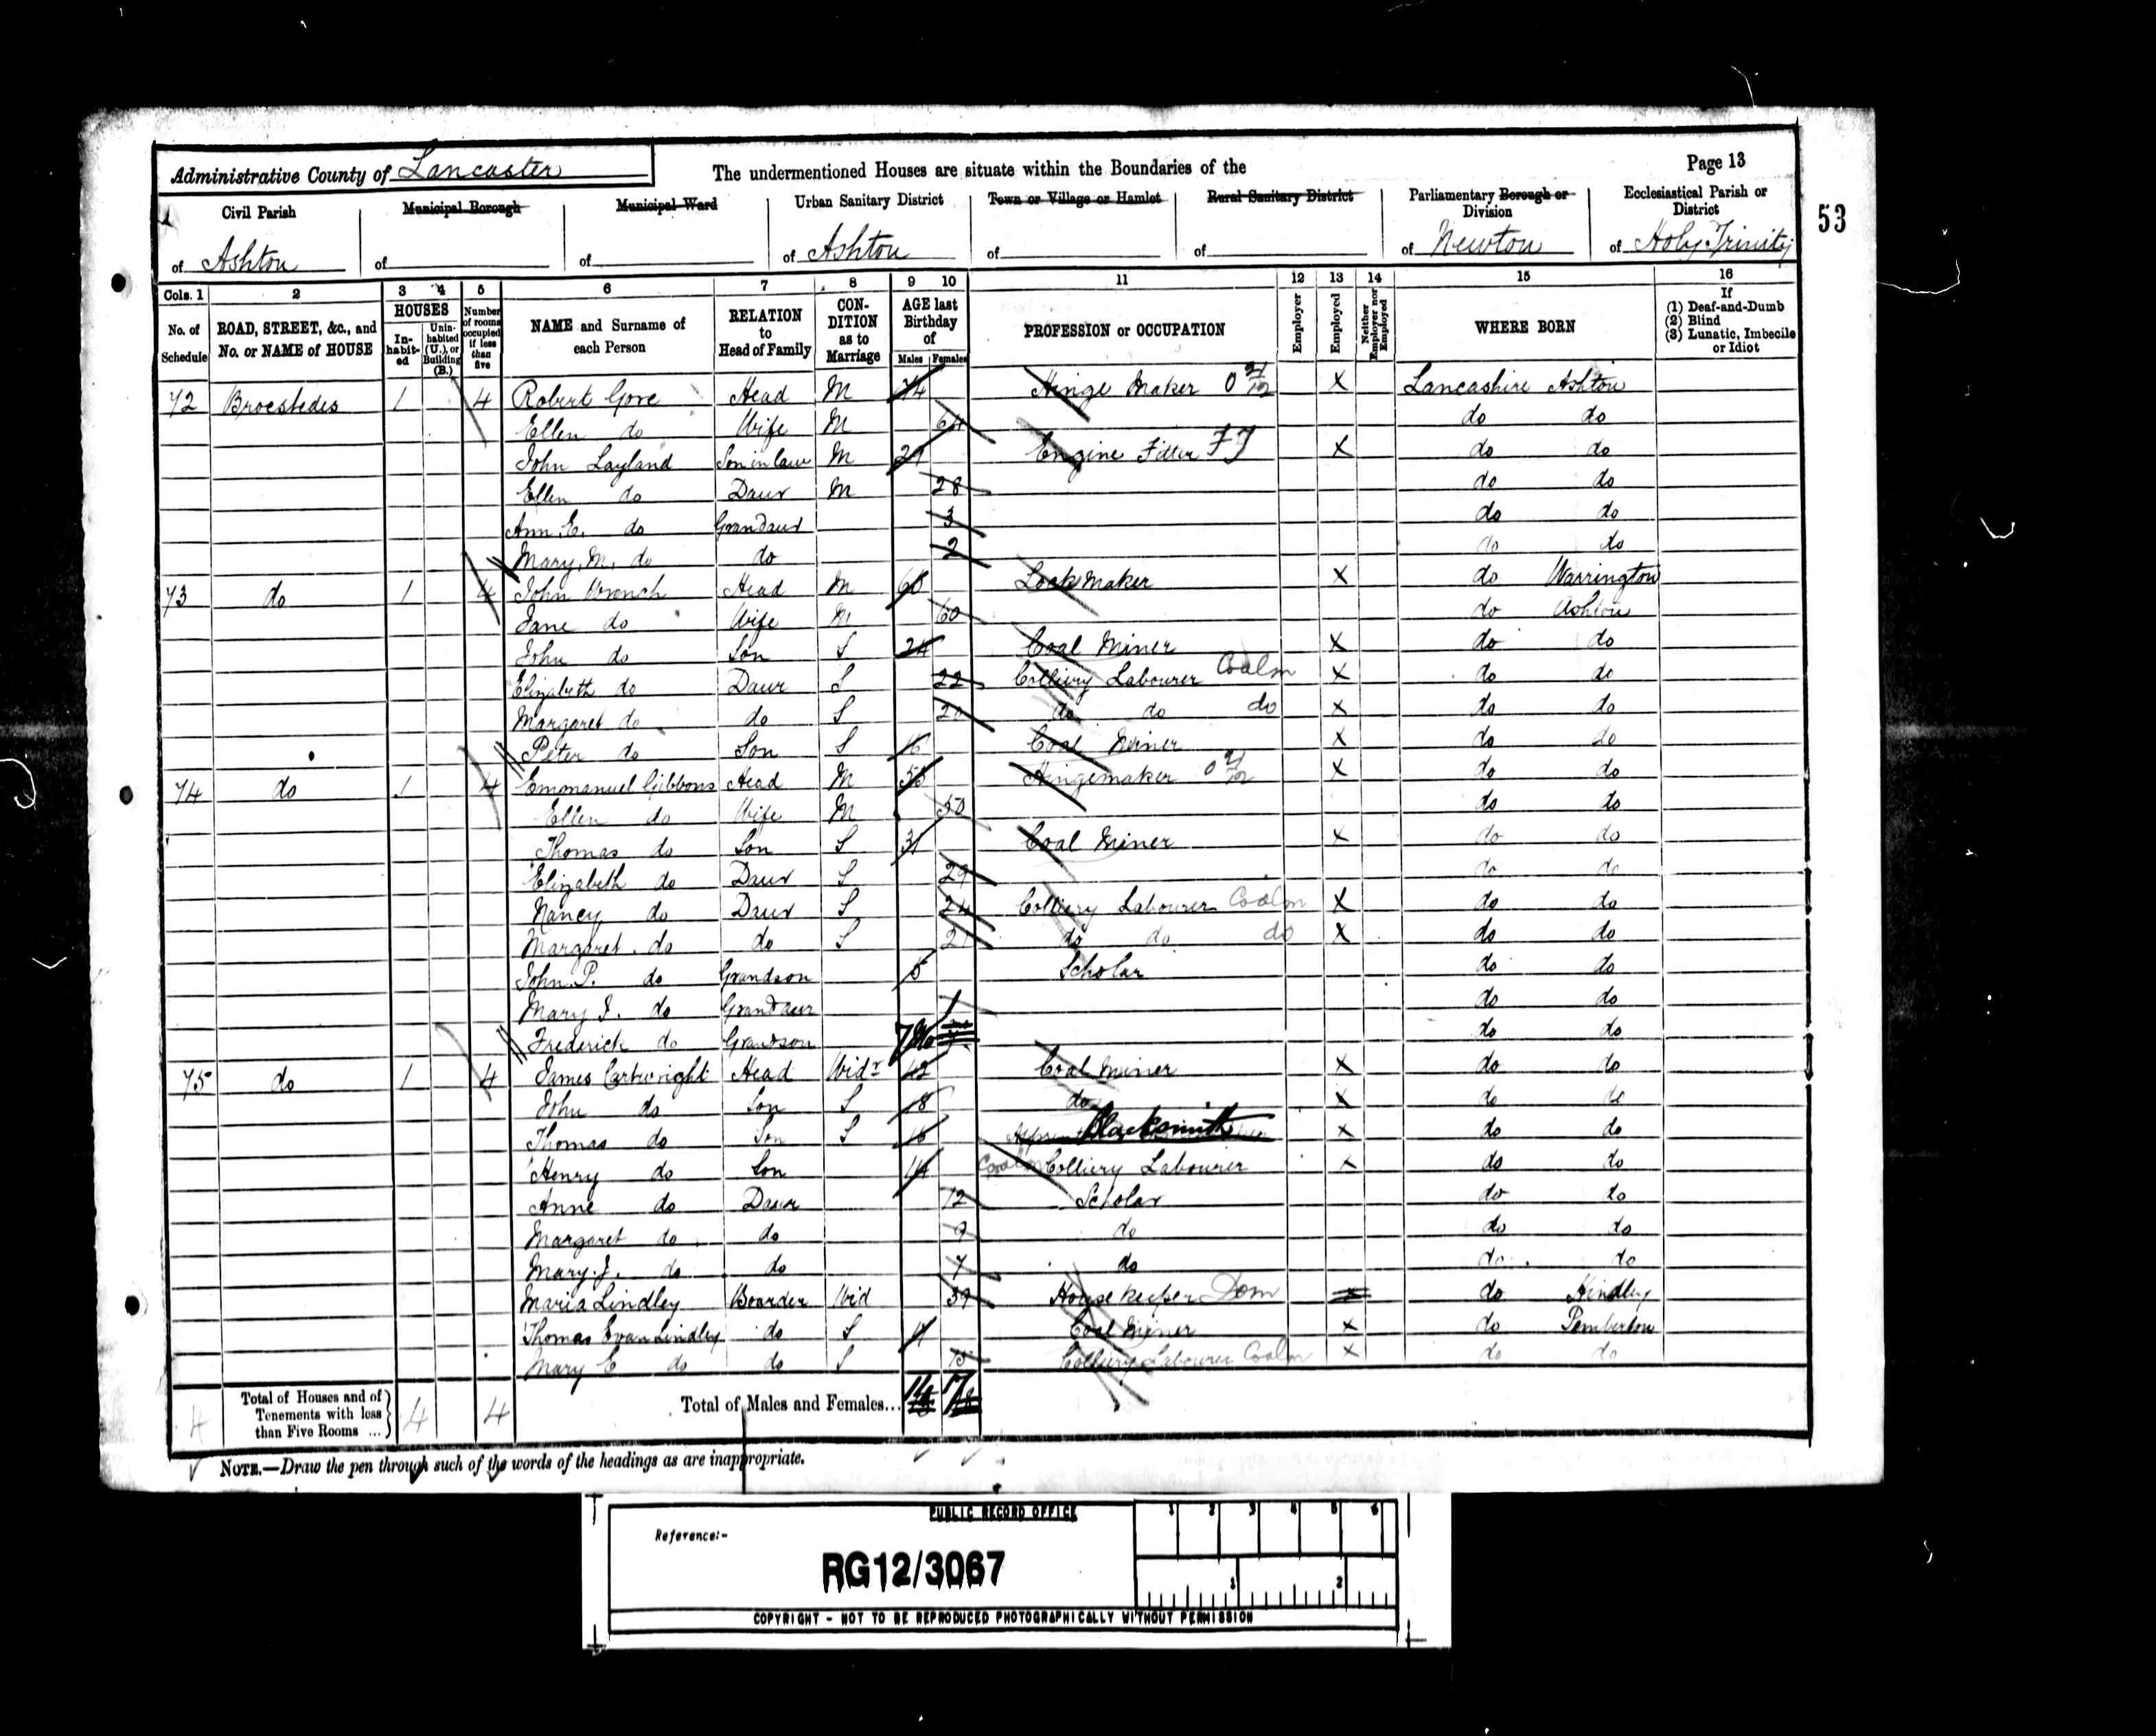 Administrative County of Lancaster
The undermentioned Houses are situate within the Boundaries of the
Page 13
53
Civil Parish
of Ashton
Municipal Borough
of
Municipal Ward
of
Urban Sanitary District
of Ashton
Town or Village or Hamlet
of
Rural Sanitary District
of
Parliamentary Borough or Division
of Newton
Ecclesiastical Parish or District
of Holy Trinity
Cols. 1 2 3 4 5 6 7 8 9 10 11 12 13 14 15 16
No. of Schedule
ROAD, STREET, &c., and No. or NAME of HOUSE
HOUSES
In-habit-ed
Unin-habited (U.), or Building (B.)
Number of rooms occupied if less than five
NAME and Surname of each Person
RELATION to Head of Family
CON-DITION as to Marriage
AGE last Birthday of
Males Females
PROFESSION or OCCUPATION
Employer
Employed
Neither Employer nor Employed
WHERE BORN
If
(1) Deaf-and-Dumb
(2) Blind
(3) Lunatic, Imbecile or Idiot
72 Brocstedes 1 4 Robert Gore Head M 74 Hinge Maker X Lancashire Ashton
Ellen do Wife M 64 do do
John Layland Son in law M Engine Fitter X do do
Ellen do Daur M 28 do do
Ann E. do Grandaur 3 do do
Mary M. do do 2 do do
73 do 1 4 John Wrench Head M Lock Maker X do Warrington
Jane do Wife M 60 do Ashton
John do Son S 24 Coal Miner X do do
Elizabeth do Daur S 22 Colliery Labourer Coalm X do do
Margaret do do S 20 do do do X do do
Peter do Son S 16 Coal Miner X do do
74 do 1 4 Emmanuel Gibbons Head M Hingemaker X do do
Ellen do Wife M 50 do do
Thomas do Son S 31 Coal Miner X do do
Elizabeth do Daur S 29 do do
Nancy do Daur S 24 Colliery Labourer Coalm X do do
Margaret do do S 21 do do do X do do
John P. do Grandson 5 Scholar do do
Mary J. do Grandaur 1 do do
Frederick do Grandson do do
75 do 1 4 James Cartwright Head Widr 42 Coal Miner X do do
John do Son S 18 do X do do
Thomas do Son S 16 Blacksmith X do do
Henry do Son 14 Coalm Colliery Labourer X do do
Anne do Daur 12 Scholar do do
Margaret do do 9 do do do
Mary J. do do 7 do do do
Maria Lindley Boarder Wid 39 Housekeeper Dom X do Hindley
Thomas Evan Lindley do S Coal Miner X do Pemberton
Mary E do do S 15 Colliery Labourer Coalm X do do
4 Total of Houses and of Tenements with less than Five Rooms ... 4 4
Total of Males and Females... 14 17
NOTE.—Draw the pen through such of the words of the headings as are inappropriate.
PUBLIC RECORD OFFICE
Reference:-
RG12/3067
1 2 3 4 5 6
1 2
COPYRIGHT - NOT TO BE REPRODUCED PHOTOGRAPHICALLY WITHOUT PERMISSION